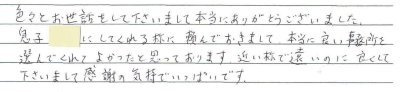 色々とお世話をして下さいまして本当にありがとうございました。
息子 にしてくれる様に頼んでおきまして本当に良い事務所を
選んでくれてよかったと思っております 近い様で遠いのに良くして
下さいまして感謝の気持でいっぱいです。